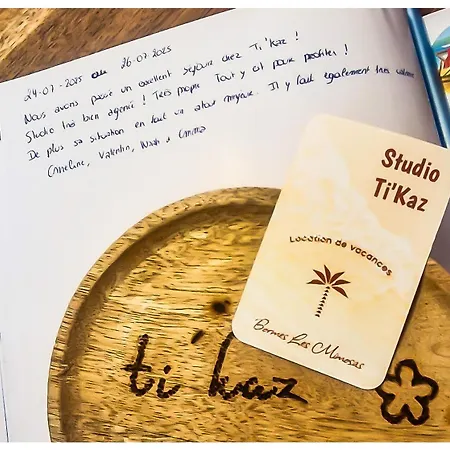 24-07-2025 au 26-07-2025
Nous avons passé un excellent séjour chez Ti'Kaz !
Studio très bien agencé ! Très propre Tout y est pour profiter !
De plus sa situation en fait un atout majeur. Il y fait également très
Valentin,
Studio
Ti'Kaz
Location de vacances
Bormes Les Mimosas
ti'kaz